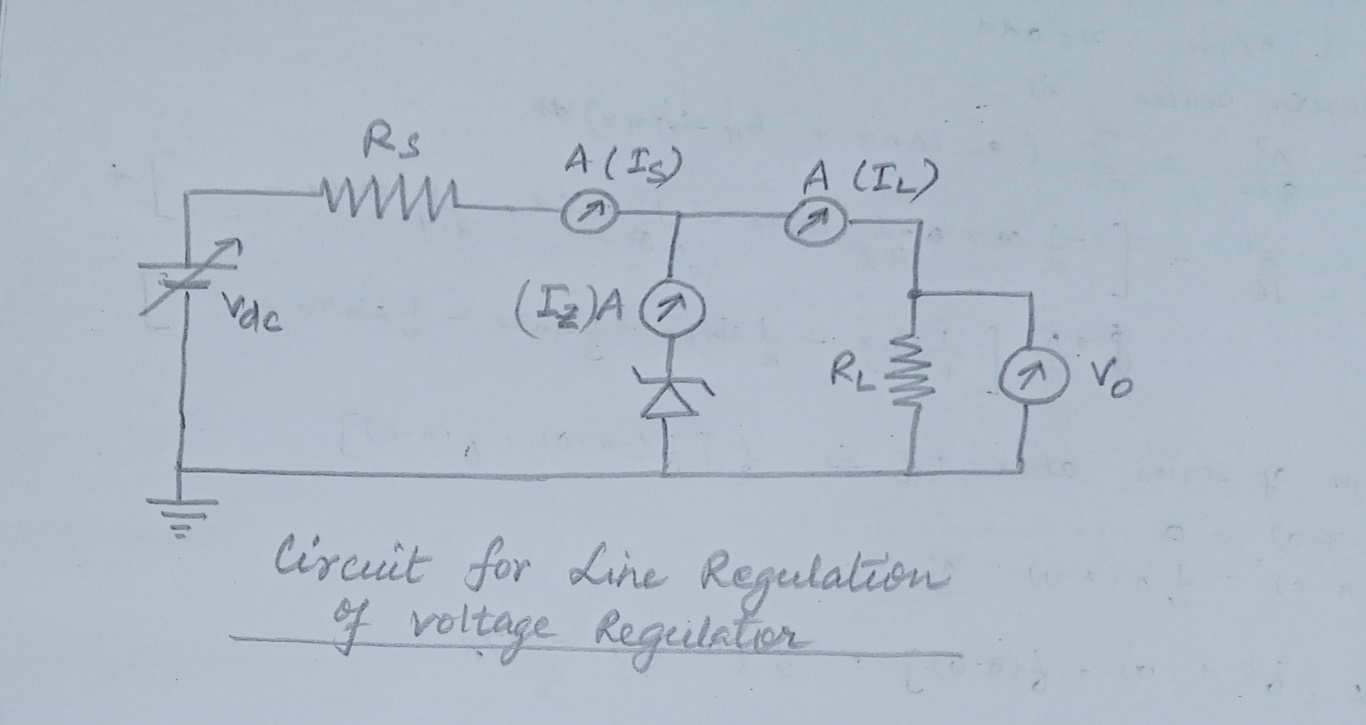 Rs
A (Is)
A (IL)
Vdc
(Iz) A
RL
Vo
Circuit for Line Regulation
of voltage Regulator